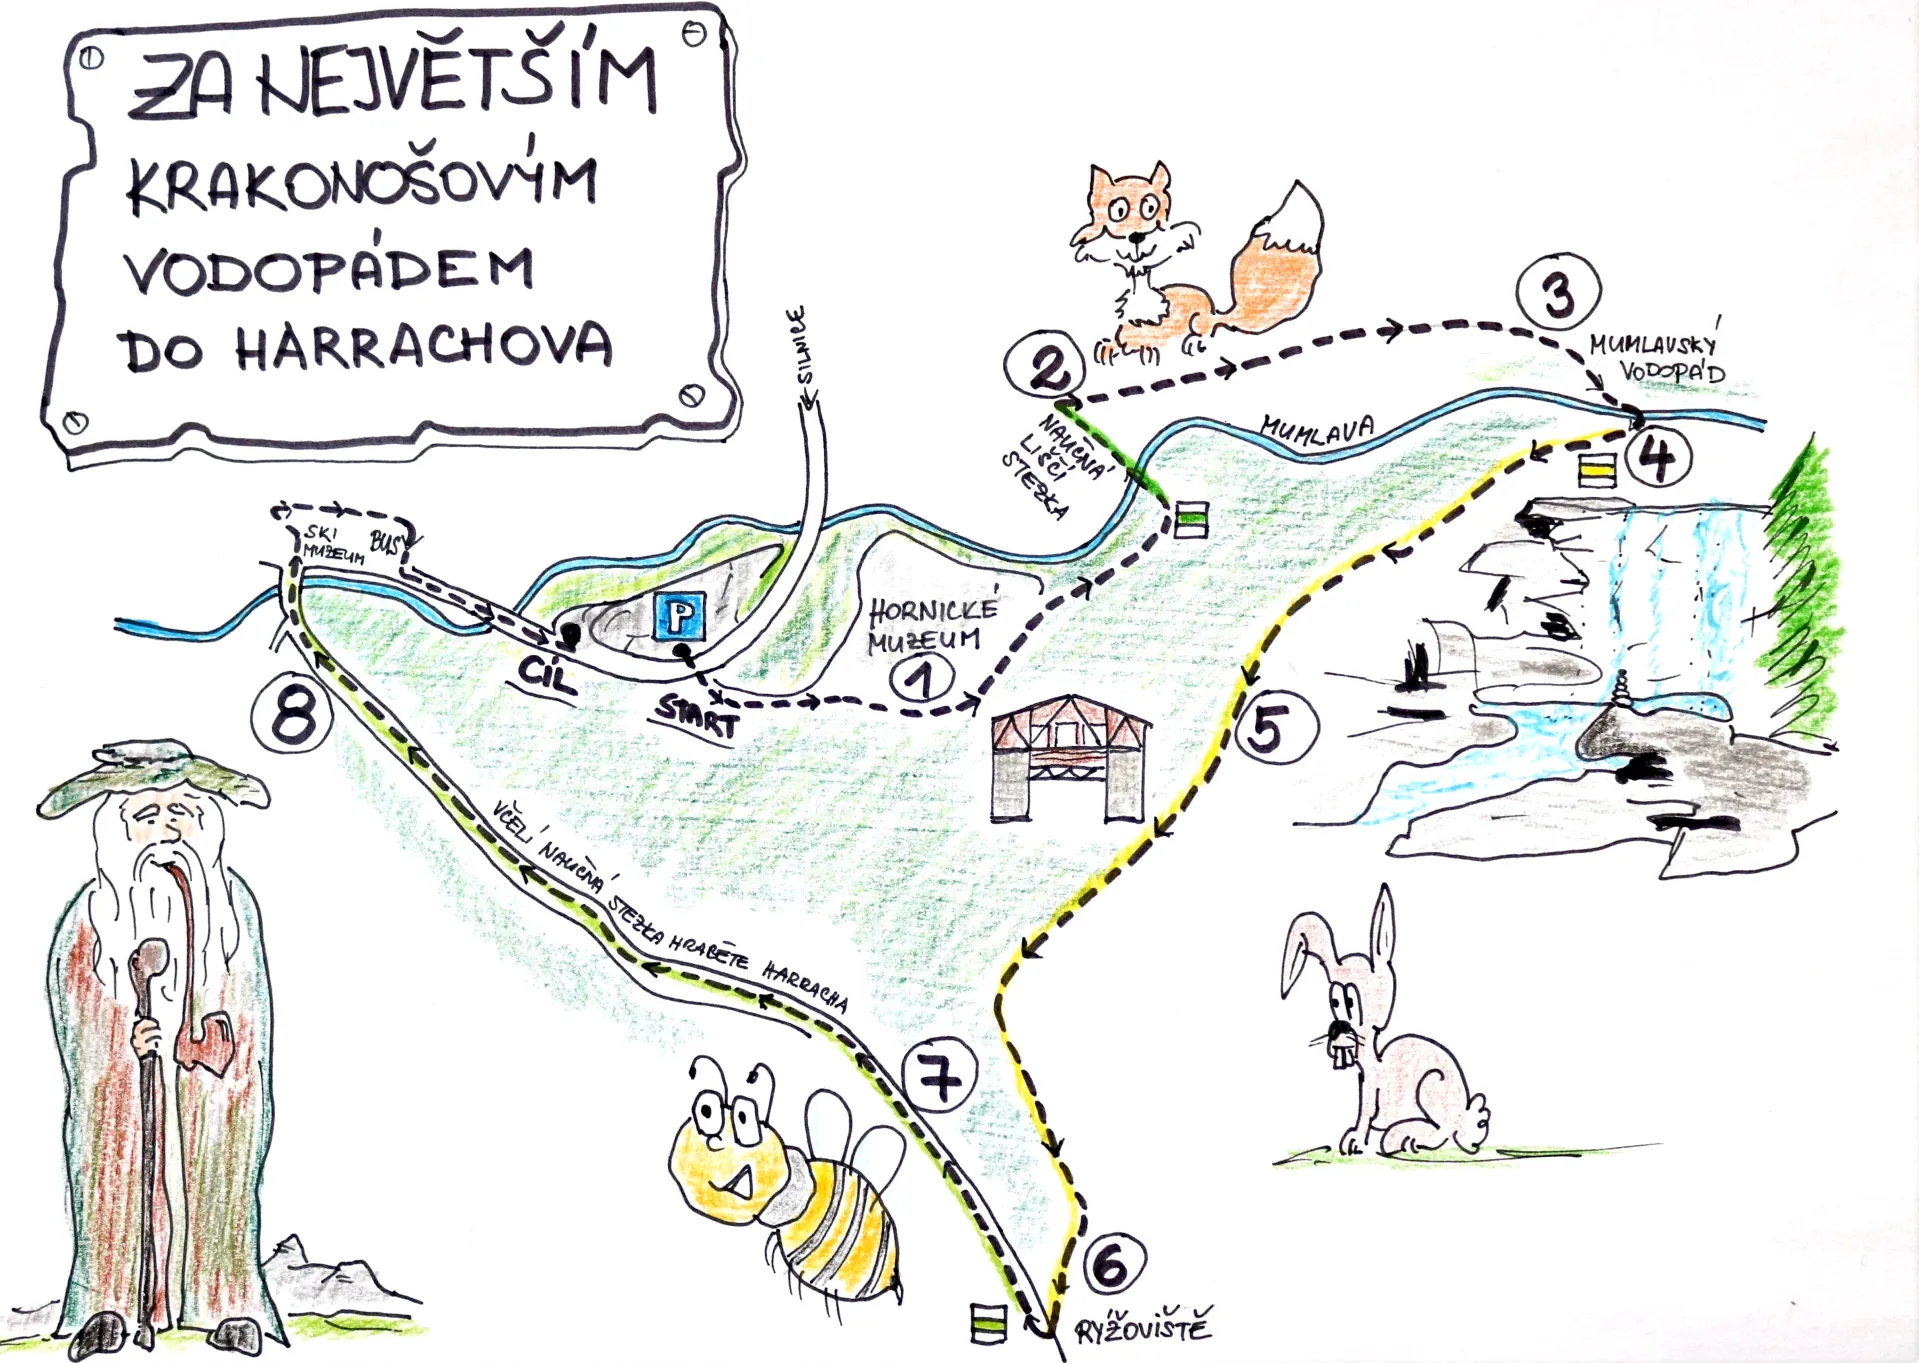 ZA NEJVĚTŠÍM
KRAKONOŠOVÝM
VODOPÁDEM
DO HARRACHOVA
SILNICE
2
3
MUMLAVSKÝ
VODOPÁD
NAUČNÁ
LIŠČÍ
STEZKA
MUMLAVA
4
SKI
MUZEUM
BUS
P
HORNICKÉ
MUZEUM
1
CÍL
START
8
5
VČELÍ NAUČNÁ STEZKA HRABĚTE HARRACHA
7
6
RÝŽOVIŠTĚ